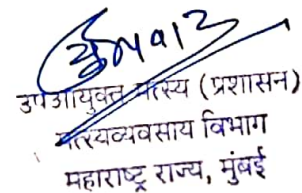 उपआयुक्त मत्स्य (प्रशासन)
मत्स्यव्यवसाय विभाग
महाराष्ट्र राज्य, मुंबई